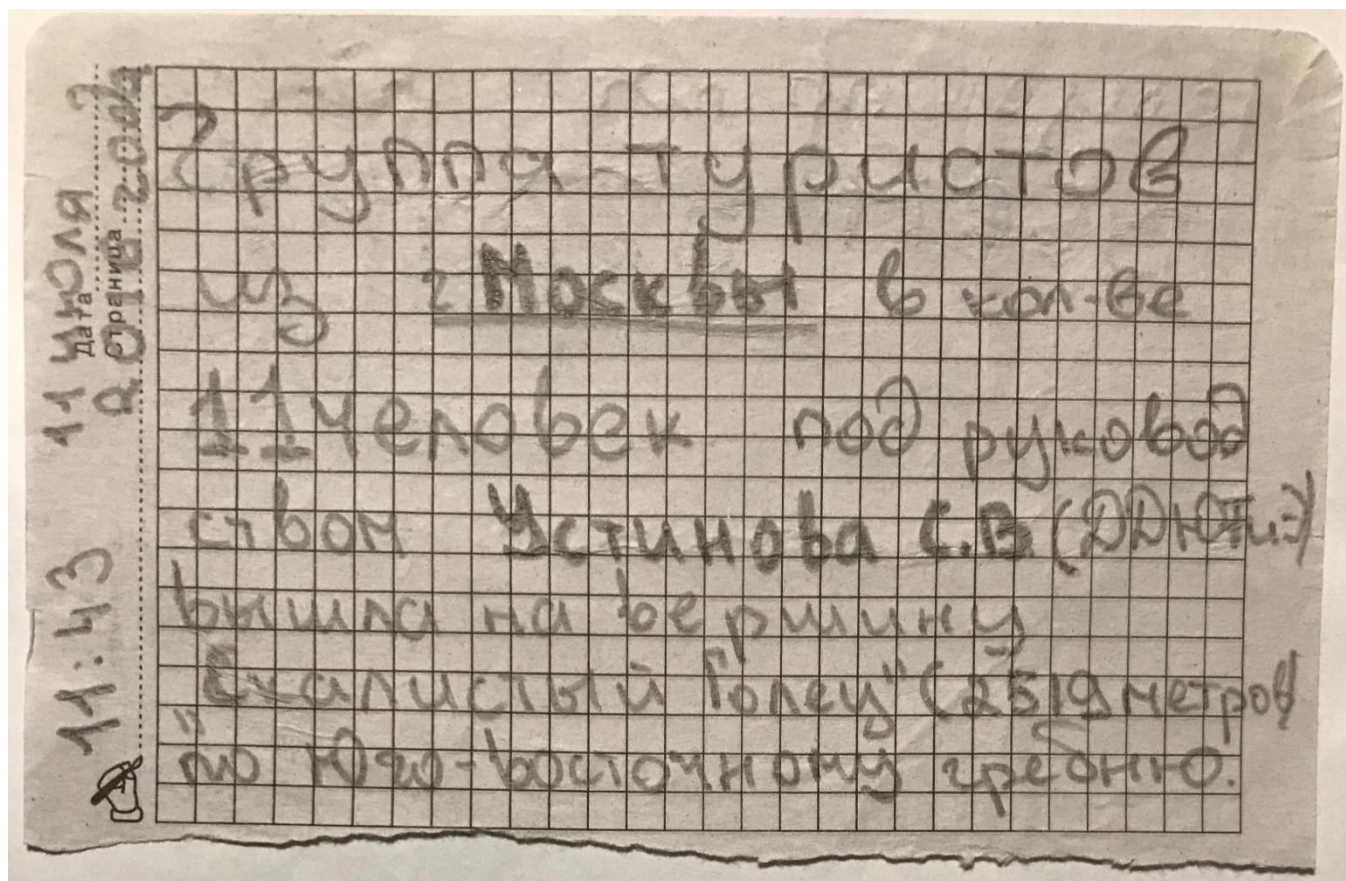 11 июля
Дата
Страница
2016 года
11:43
Группа туристов
из г Москвы в кол-ве
11 человек под руковод
ством Устинова С.В (ДДЮТи-)
вышла на вершину
"Скалистый Голец" (2519 метров)
по Юго-восточному гребню.